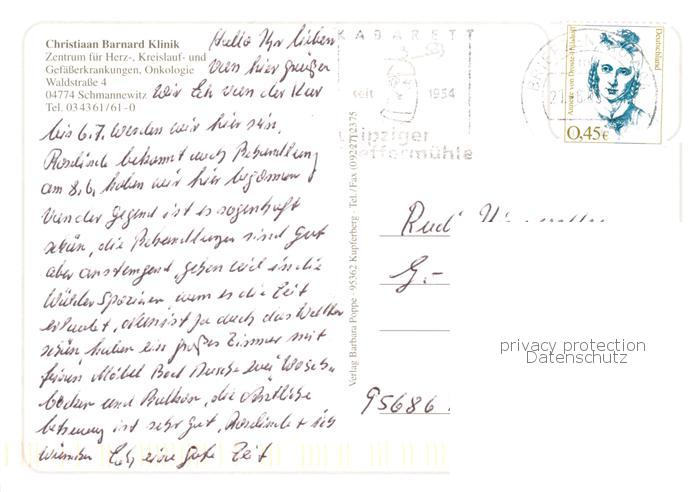 Christiaan Barnard Klinik
Zentrum für Herz-, Kreislauf- und
Gefäßerkrankungen, Onkologie
Waldstraße 4
04774 Schmannewitz
Tel. 0 34 3 61 / 61-0
Hallo Ihr lieben
von hier grüßen
wir Euch von der Kur
bis 6.7. werden wir hier sein,
Roslinde bekommt auch Behandlung
am 8.6. haben wir hier begonnen
Von der Gegend ist es sagenhaft
schön, die Behandlungen sind gut
aber anstrengend, gehen viel in die
Wälder Spazieren wenn es die Zeit
erlaubt, ist ja auch das Wetter
schön, haben ein großes Zimmer mit
Möbel Bad Dusche zwei Wasch-
becken und Balkon, die Ärztliche
betreuung ist sehr gut, Roslinde + ich
wünschen Euch eine gute Zeit
KABARETT
seit 1954
Leipziger
Pfeffermühle
Annette von Droste-Hülshoff
Deutschland
0,45€
Verlag Barbara Poppe - 95362 Kupferberg - Tel./Fax (09227) 2375
Rudi
G.-
95686
privacy protection
Datenschutz